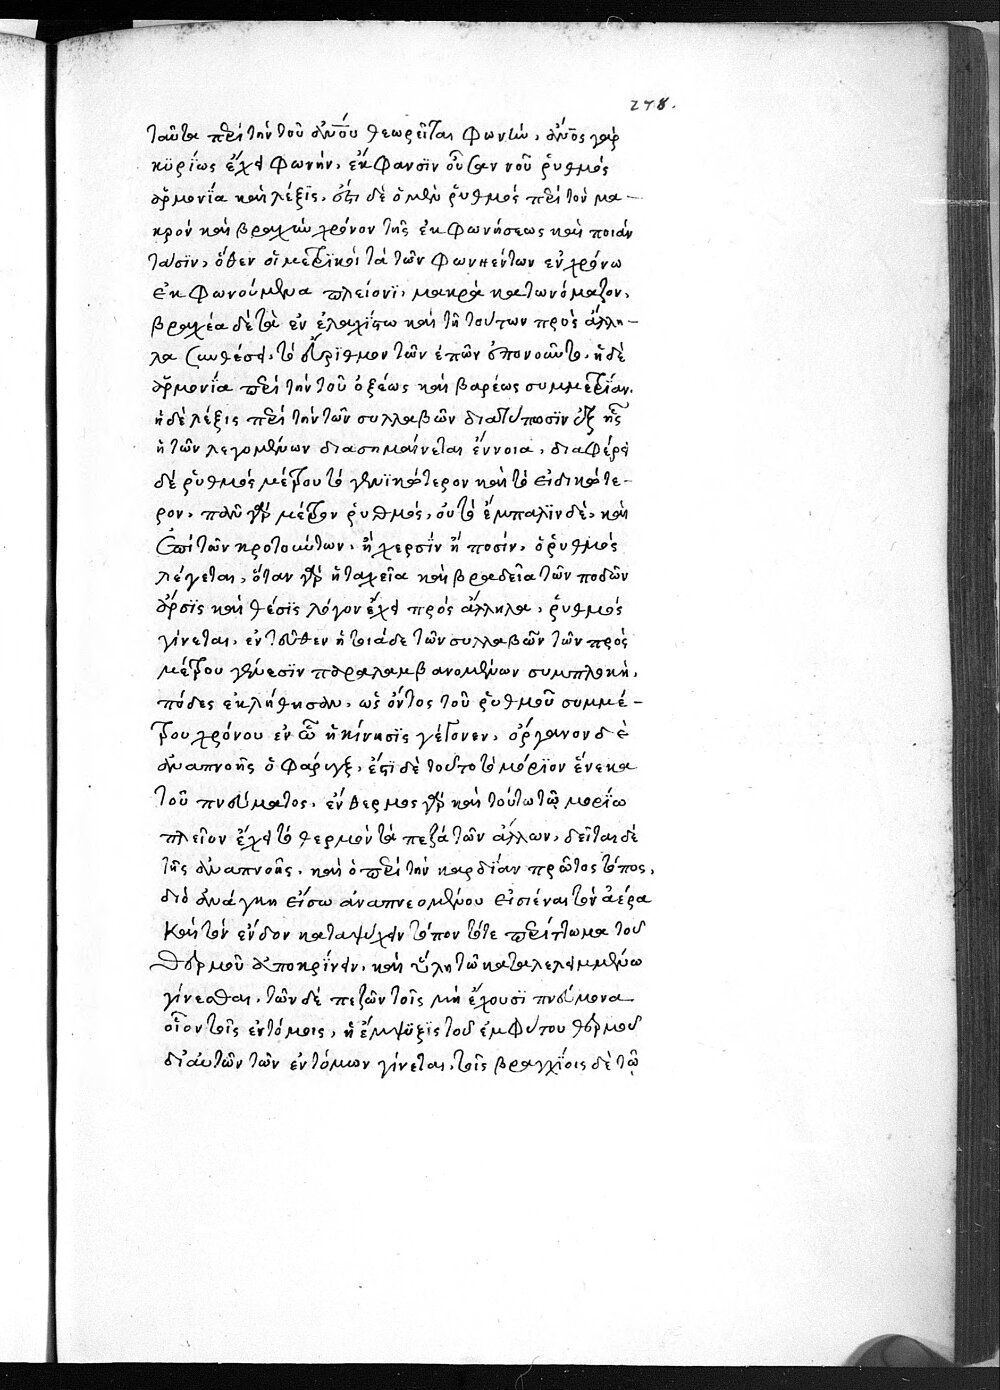 278.
ταῦτα περὶ τὴν τοῦ ἀνου θεωρεῖται φωνὴν, ἄνος γὰρ
κϋρίως ἔχει φωνὴν, ἔκφανσϊν οὖσαν νοῦ ῥυθμὸς
ἁρμονΐα καὶ λέξϊς, ἔστι δὲ ὁ μὲν ῥυθμὸς περὶ τὸν μα-
κρὸν καὶ βραχὺν χρόνον τῆς ἐκφωνήσεως καὶ ποιὰν
τάσϊν, ὅθεν οἱ μετρϊκοὶ τὰ τῶν φωνηέντων ἐν χρόνω
ἐκφωνούμενα πλείονϊ, μακρὰ κατωνόμαζον,
βραχέα δὲ τὰ ἐν ἐλαχΐστω καὶ τῆ τούτων πρὸς ἄλλη-
λα συνθέσει, τὸ εὔρϊθμον τῶν ἐπῶν ἐπονοῦντο, ἡ δὲ
ἁρμονΐα περὶ τὴν τοῦ ὀξέως καὶ βαρέως συμμετρΐαν.
ἡ δὲ λέξις περὶ τὴν τῶν συλλαβῶν διατύποσϊν ἐξ ἧς
ἡ τῶν λεγομένων διασημαίνεται ἔννοια, διαφέρει
δὲ ῥυθμὸς μέτρου τὸ γενϊκώτερον καὶ τὸ εἰδικώτε-
ρον, πᾶν γὰρ μέτρον ῥυθμὸς, οὐ τὸ ἔμπαλϊν δὲ, καὶ
ἐπὶ τῶν κροτούντων, ἢ χερσΐν ἢ ποσΐν, ὁ ῥυθμὸς
λέγεται, ὅταν γὰρ ἡ ταχεῖα καὶ βραδεῖα τῶν ποδῶν
ἄρσϊς καὶ θέσϊς λόγον ἔχει πρὸς ἄλληλα, ῥυθμὸς
γίνεται, ἐντεῦθεν ἡ τοιάδε τῶν συλλαβῶν τῶν πρὸς
μέτρου γένεσϊν παραλαμβανομένων συμπλοκὴ,
πόδες ἐκλήθησαν, ὡς ὄντος τοῦ ῥυθμοῦ συμμέ-
τρου χρόνου ἐν ὧ ἡ κίνησϊς γέγονεν, ὄργανον δὲ
ἀναπνοῆς ὁ φάρυγξ, ἔστι δὲ τοῦτο τὸ μόρϊον ἕνεκα
τοῦ πνεύματος, ἔνθερμος γὰρ καὶ τούτω τῷ μορΐω
πλεῖον ἔχει τὸ θερμὸν τὰ πεζὰ τῶν ἄλλων, δεῖται δὲ
τῆς ἀναπνοῆς, καὶ ὁ περὶ τὴν καρδΐαν πρῶτος τόπος,
διὸ ἀνάγκη εἴσω ἀναπνεομένου εἰσιέναι τὸν ἀέρα
καὶ τὸν ἔνδον καταψύχειν τόπον τότε περίττωμα τοῦ
θερμοῦ ἀποκρΐνειν, καὶ ὕλη τῶ καταλελειμμένω
γίνεσθαι, τῶν δὲ πεζῶν τοῖς μὴ ἔχουσϊ πνεύμονα
οἷον τοῖς ἐντόμοις, ἡ ἔμψϋξϊς τοῦ ἐμφύτου θερμοῦ
δι' αὐτῶν τῶν ἐντόμων γίνεται, τοῖς βραγχΐοις δὲ τῷ